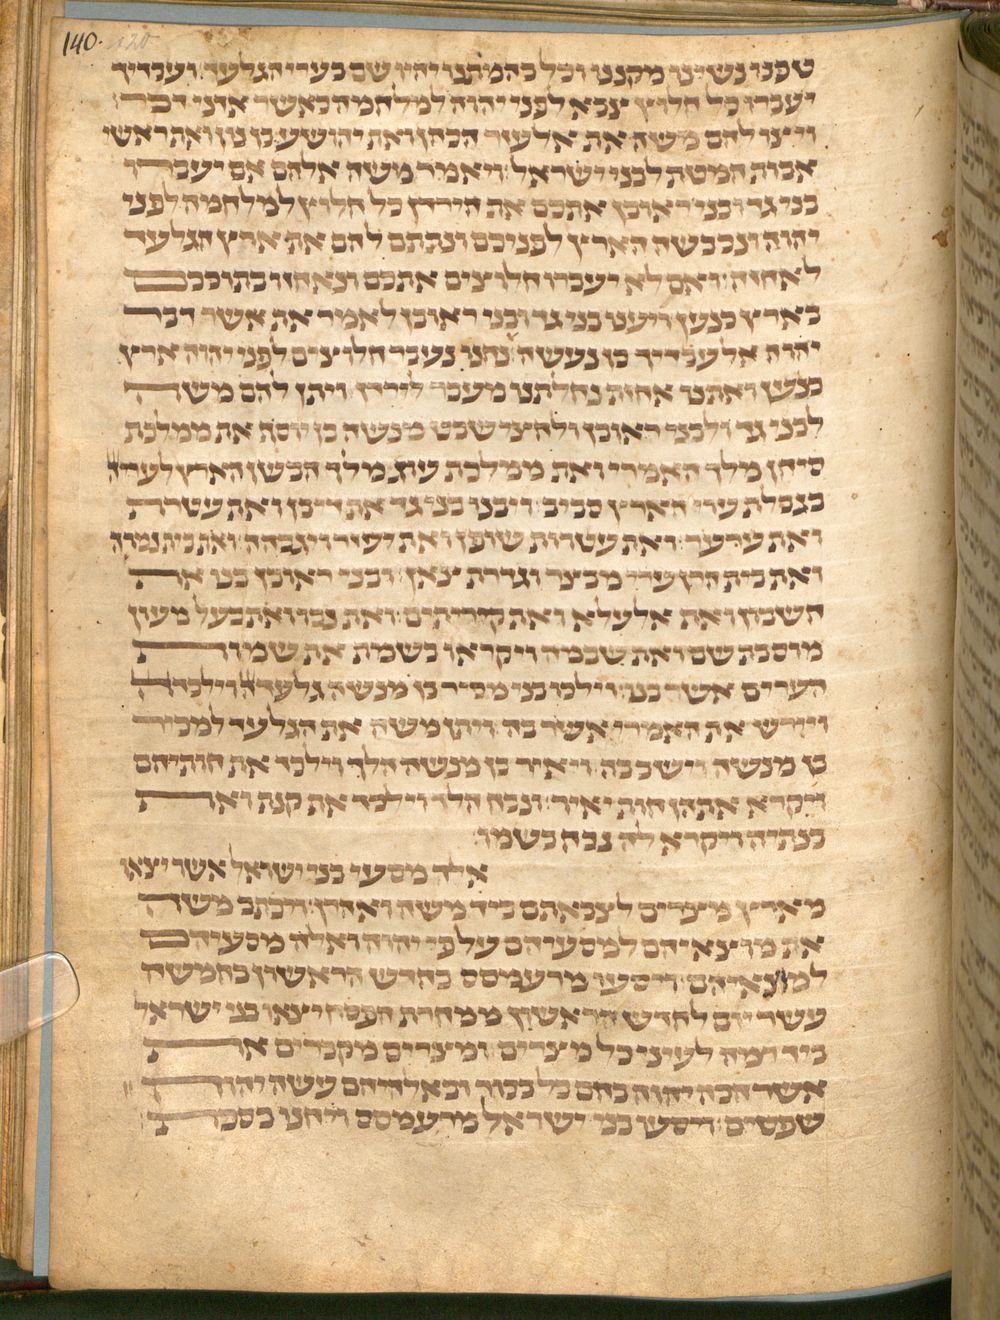 140. 120
טפנו נשינו מקננו וכל בהמתנו יהיו שם בערי הגלעד ועבדיך
יעברו כל חלוץ צבא לפני יהוה למלחמה כאשר אדני דבר
ויצו להם משה את אלעזר הכהן ואת יהושע בן נון ואת ראשי
אבות המטת לבני ישראל ויאמר משה אלהם אם יעברו
בני גד ובני ראובן אתכם את הירדן כל חלוץ למלחמה לפני
יהוה ונכבשה הארץ לפניכם ונתתם להם את ארץ הגלעד
לאחזה ואם לא יעברו חלוצים אתכם ונאחזו בתוככם
בארץ כנען ויענו בני גד ובני ראובן לאמר את אשר דבר
יהוה אל עבדיך כן נעשה נחנו נעבר חלוצים לפני יהוה ארץ
כנען ואתנו אחזת נחלתנו מעבר לירדן ויתן להם משה
לבני גד ולבני ראובן ולחצי שבט מנשה בן יוסף את ממלכת
סיחן מלך האמרי ואת ממלכת עוג מלך הבשן הארץ לעריה
בגבלת ערי הארץ סביב ויבנו בני גד את דיבן ואת עטרת
ואת ערער ואת עטרות שופן ואת יעזר ויגבהה ואת בית נמרה
ואת בית הרן ערי מבצר וגדרת צאן ובני ראובן בנו את
חשבון ואת אלעלא ואת קיריתים ואת נבו ואת בעל מעון
מוסבת שם ואת שבמה ויקראו בשמת את שמות
הערים אשר בנו וילכו בני מכיר בן מנשה גלעדה וילכדה
ויורש את האמרי אשר בה ויתן משה את הגלעד למכיר
בן מנשה וישב בה ויאיר בן מנשה הלך וילכד את חותיהם
ויקרא אתהן חות יאיר ונבח הלך וילכד את קנת ואת
בנתיה ויקרא לה נבח בשמו
אלה מסעי בני ישראל אשר יצאו
מארץ מצרים לצבאתם ביד משה ואהרן ויכתב משה
את מוצאיהם למסעיהם על פי יהוה ואלה מסעיהם
למוצאיהם ויסעו מרעמסס בחדש הראשון בחמשה
עשר יום לחדש הראשון ממחרת הפסח יצאו בני ישראל
ביד רמה לעיני כל מצרים ומצרים מקברים את
אשר הכה יהוה בהם כל בכור ובאלהיהם עשה יהוה
שפטים ויסעו בני ישראל מרעמסס ויחנו בסכת